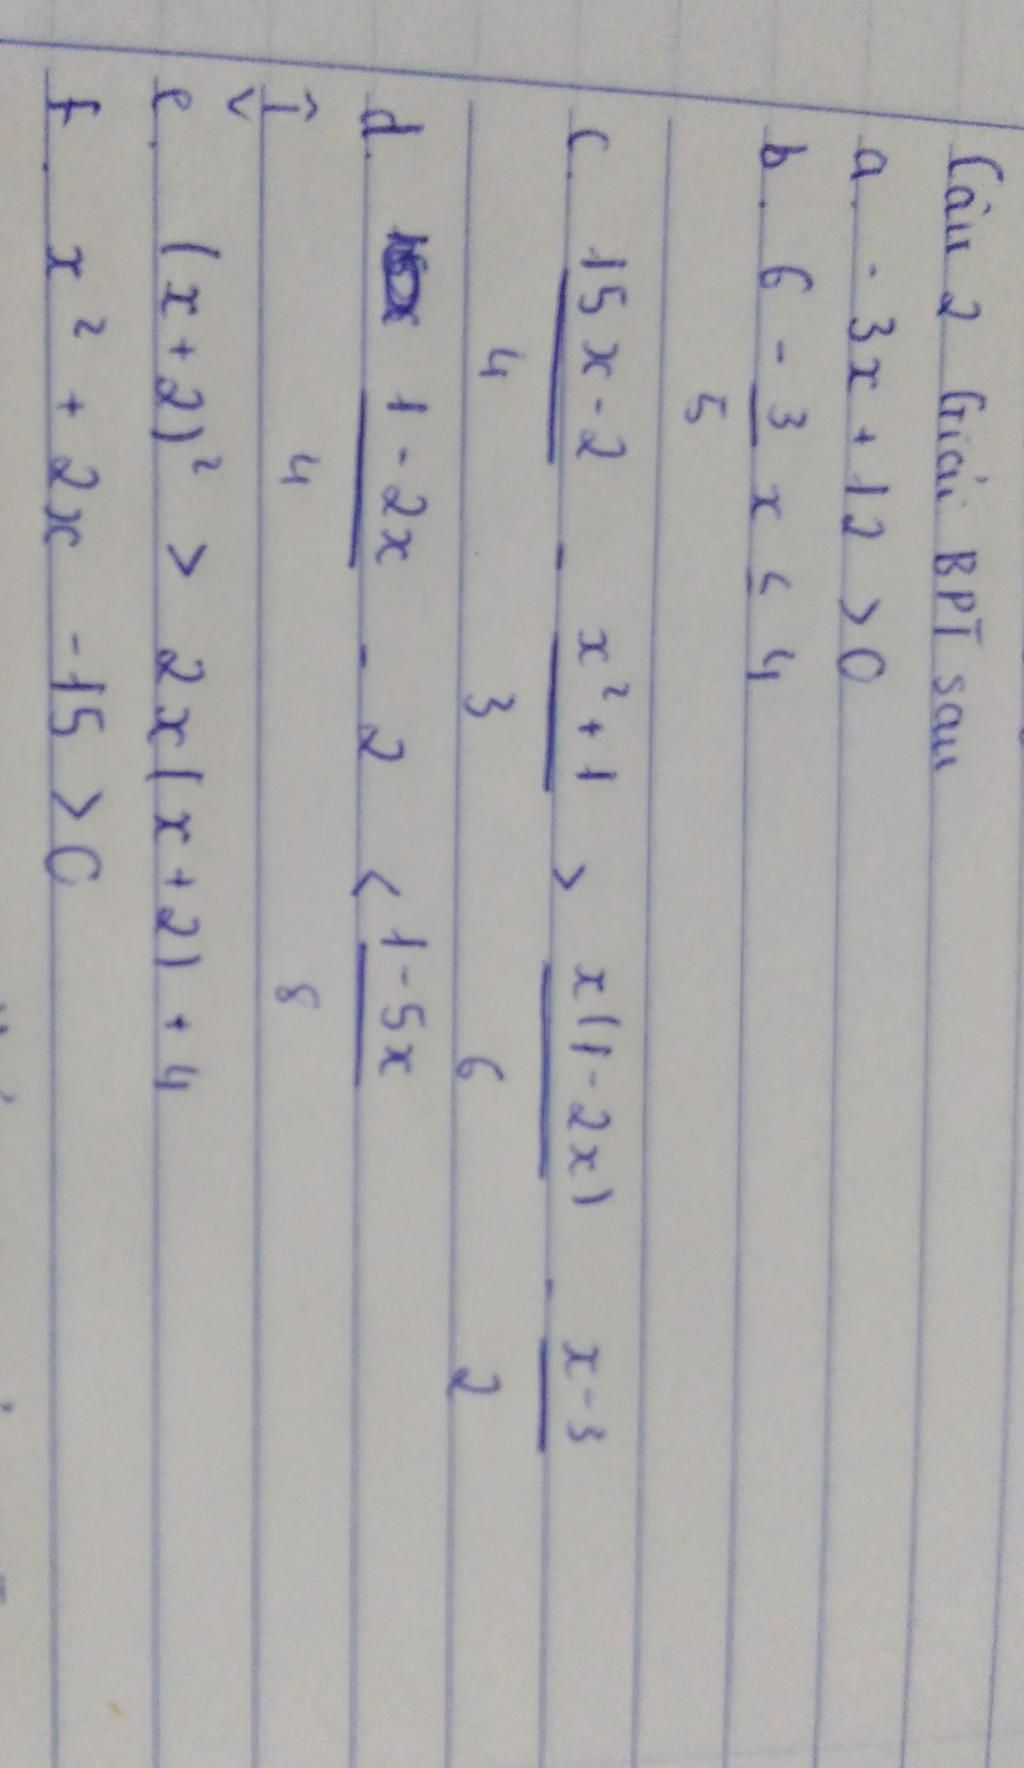 Câu 2 Giải BPT sau
a. -3x + 12 > 0
b. 6 - 3/5 x ≤ 4
c. 15x-2/4 - x²+1/3 > x(1-2x)/6 - x-3/2
d. 1-2x/4 - 2 < 1-5x/8
e. (x+2)² > 2x(x+2) + 4
f. x² + 2x - 15 > 0